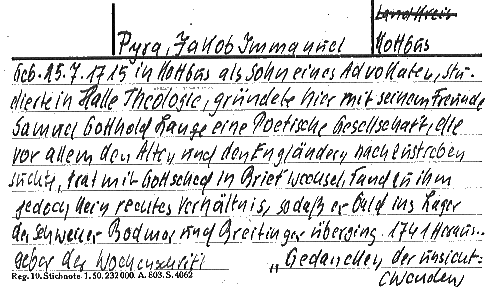 Landkreis
Pyra, Jakob Immanuel Kottbus
Geb. 25.7.1715 in Kottbus als Sohn eines Advokaten, stu-
dierte in Halle Theologie, gründete hier mit seinem Freunde
Samuel Gotthold Lange eine Poetische Gesellschaft, die
vor allem den Alten und den Engländern nachzustreben
suchte, trat mit Gottsched in Briefwechsel, fand zu ihm
jedoch kein rechtes Verhältnis, sodaß er bald ins Lager
der Schweizer Bodmer und Breitinger überging. 1741 Heraus-
geber der Wochenschrift „Gedancken der unsicht-
Reg. 19. Stichnote. 1. 50. 232000. A. 803. S. 4062